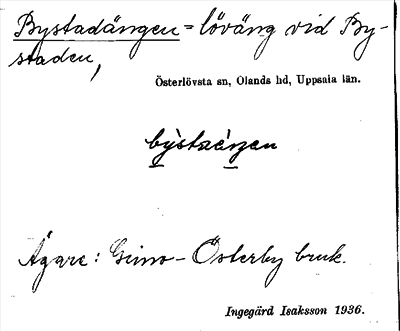 Bystadängen = löväng vid By-
staden,
Österlövsta sn, Olands hd, Uppsala län.
bỳstaèŋen
Ägare: Gimo-Österby bruk.
Ingegärd Isaksson 1936.